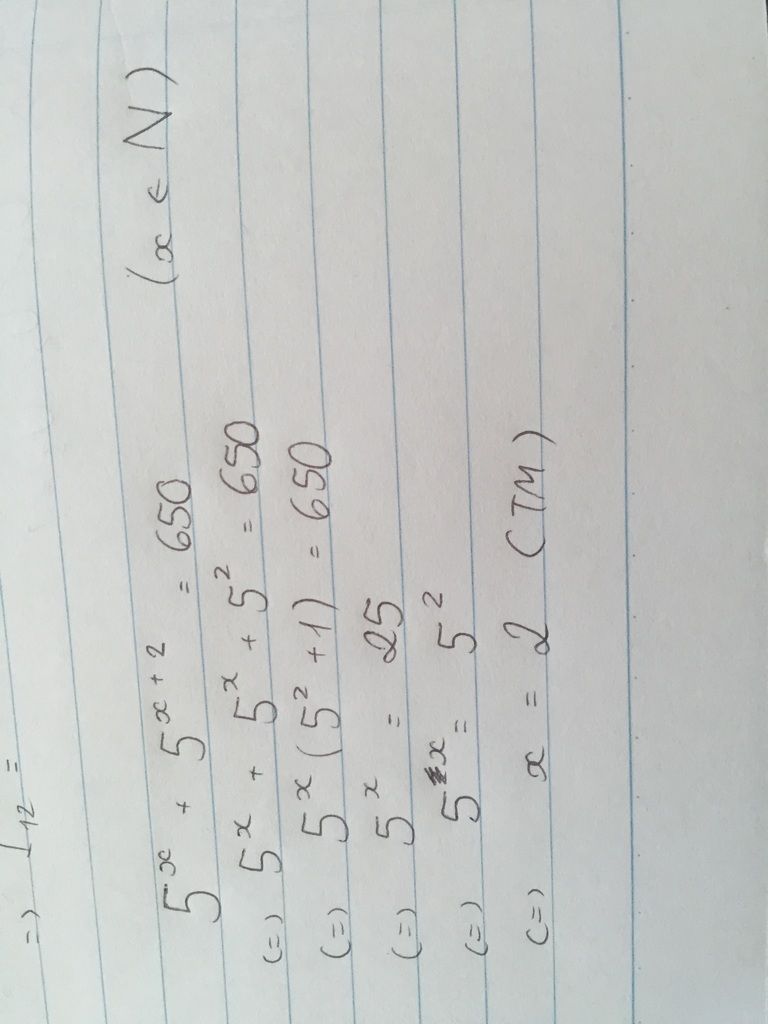 => I₁₂ =
5ˣ + 5ˣ⁺² = 650 (x ∈ N)
(=) 5ˣ + 5ˣ + 5² = 650
(=) 5ˣ (5² + 1) = 650
(=) 5ˣ = 25
(=) 5ˣ = 5²
(=) x = 2 (TM)